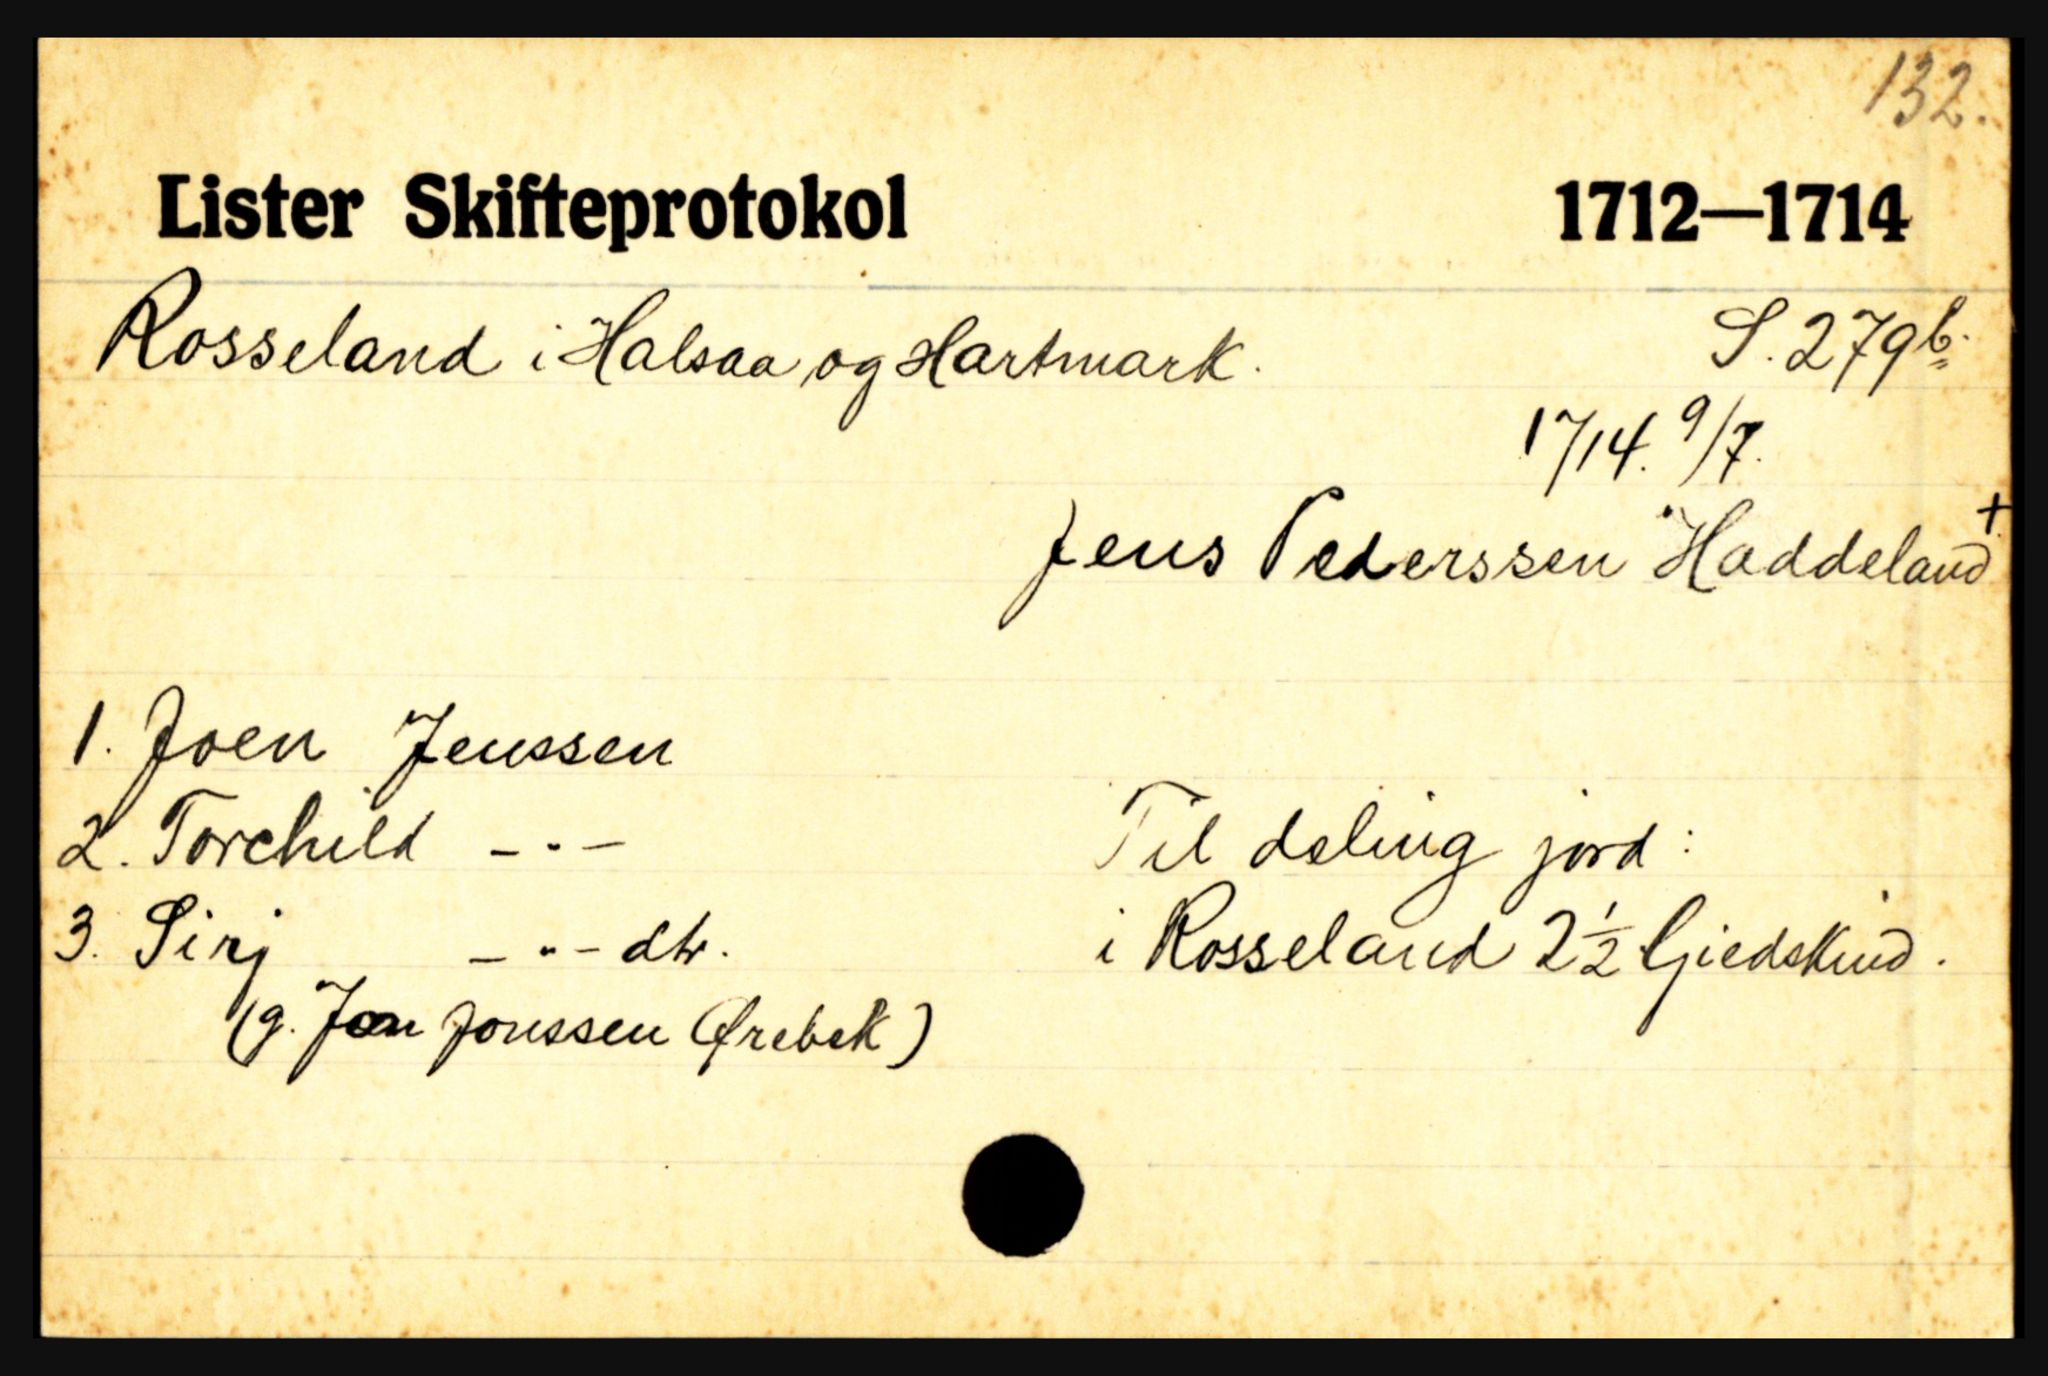 132.
Lister Skifteprotokol 1712—1714
Rosseland i Halsaa og Hartmark. S. 279b.
1714. 9/7.
Jens Pederssen Haddeland +
1. Joen Jenssen
2. Torchild -"-
3. Sirj -"- dtr.
(g. Jon Jonssen Ørebek)
Til deling jord:
i Rosseland 2½ Gjedskind.